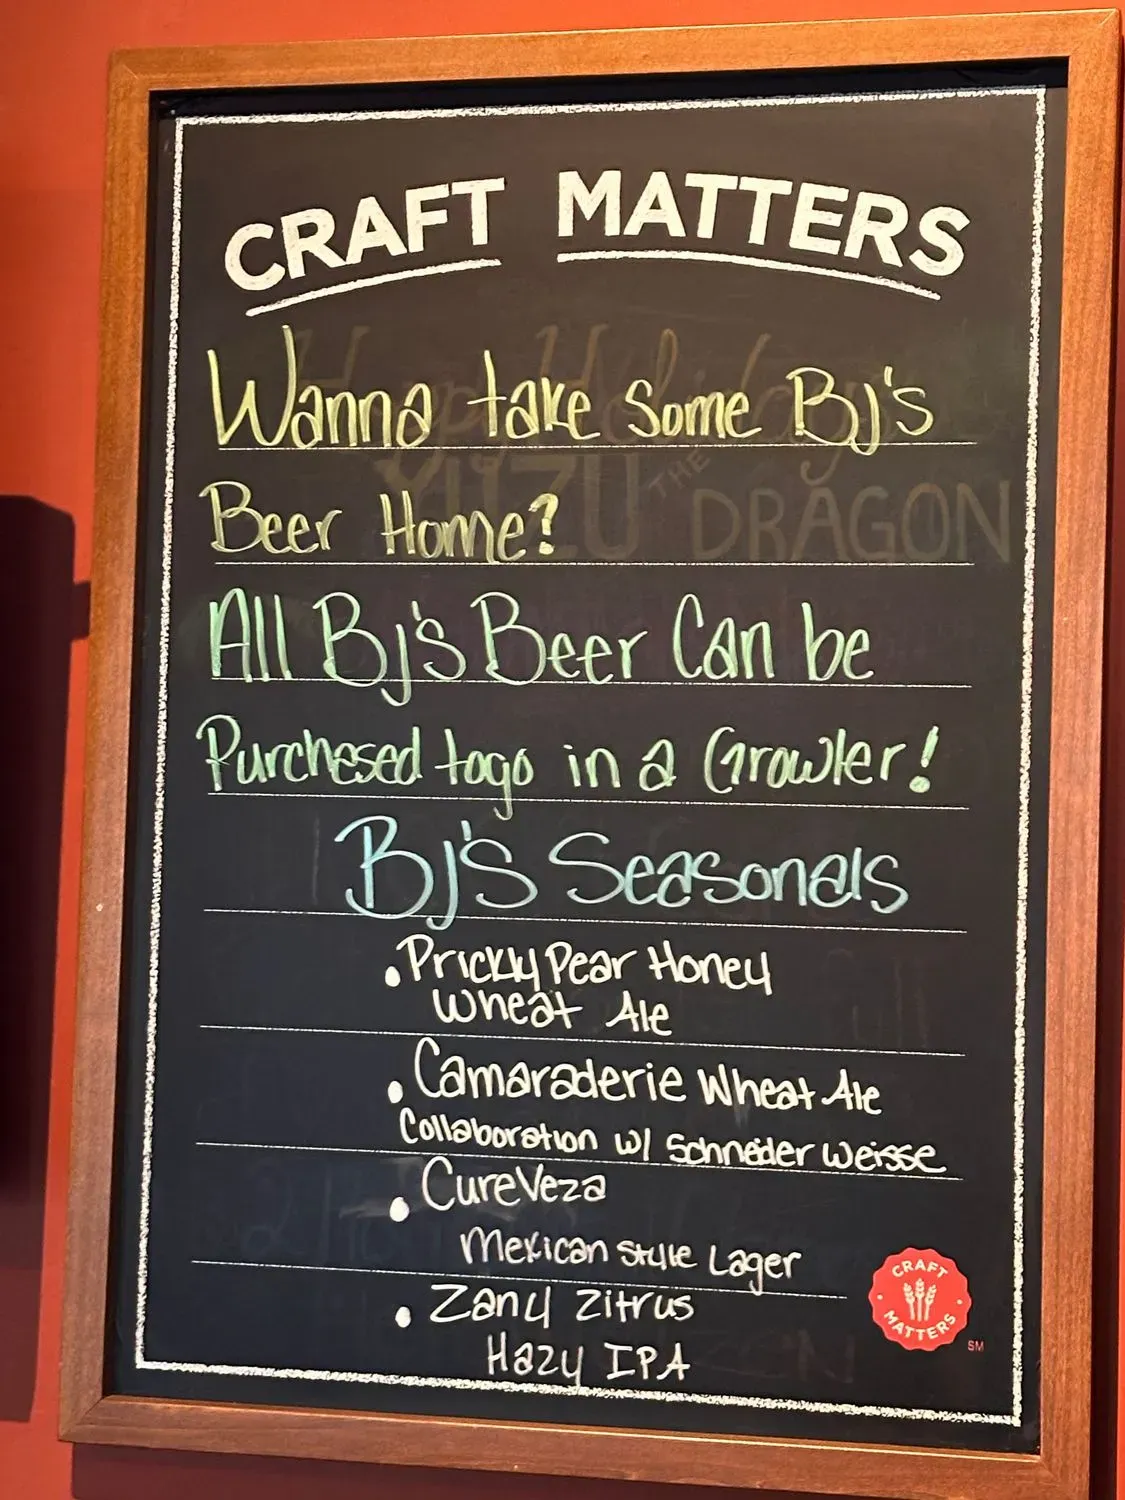 CRAFT MATTERS
Happy Holidays
Wanna take some BJ's
YUZU THE DRAGON
Beer Home?
All BJ's Beer Can be
Purchesed togo in a Growler!
BJ's Seasonals
• Prickly Pear Honey
Wheat Ale
• Camaraderie Wheat Ale
Collaboration w/ Schneider Weisse
• CureVeza
Mexican Style Lager
• Zany Zitrus
Hazy IPA
CRAFT
MATTERS
SM